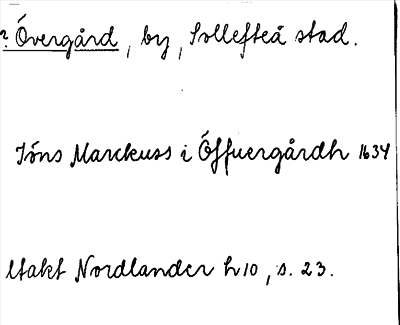 ? Övergård, by, Sollefteå stad.
Jöns Marckuss i Öffuergårdh 1634
Utakt Nordlander h 10, s. 23.